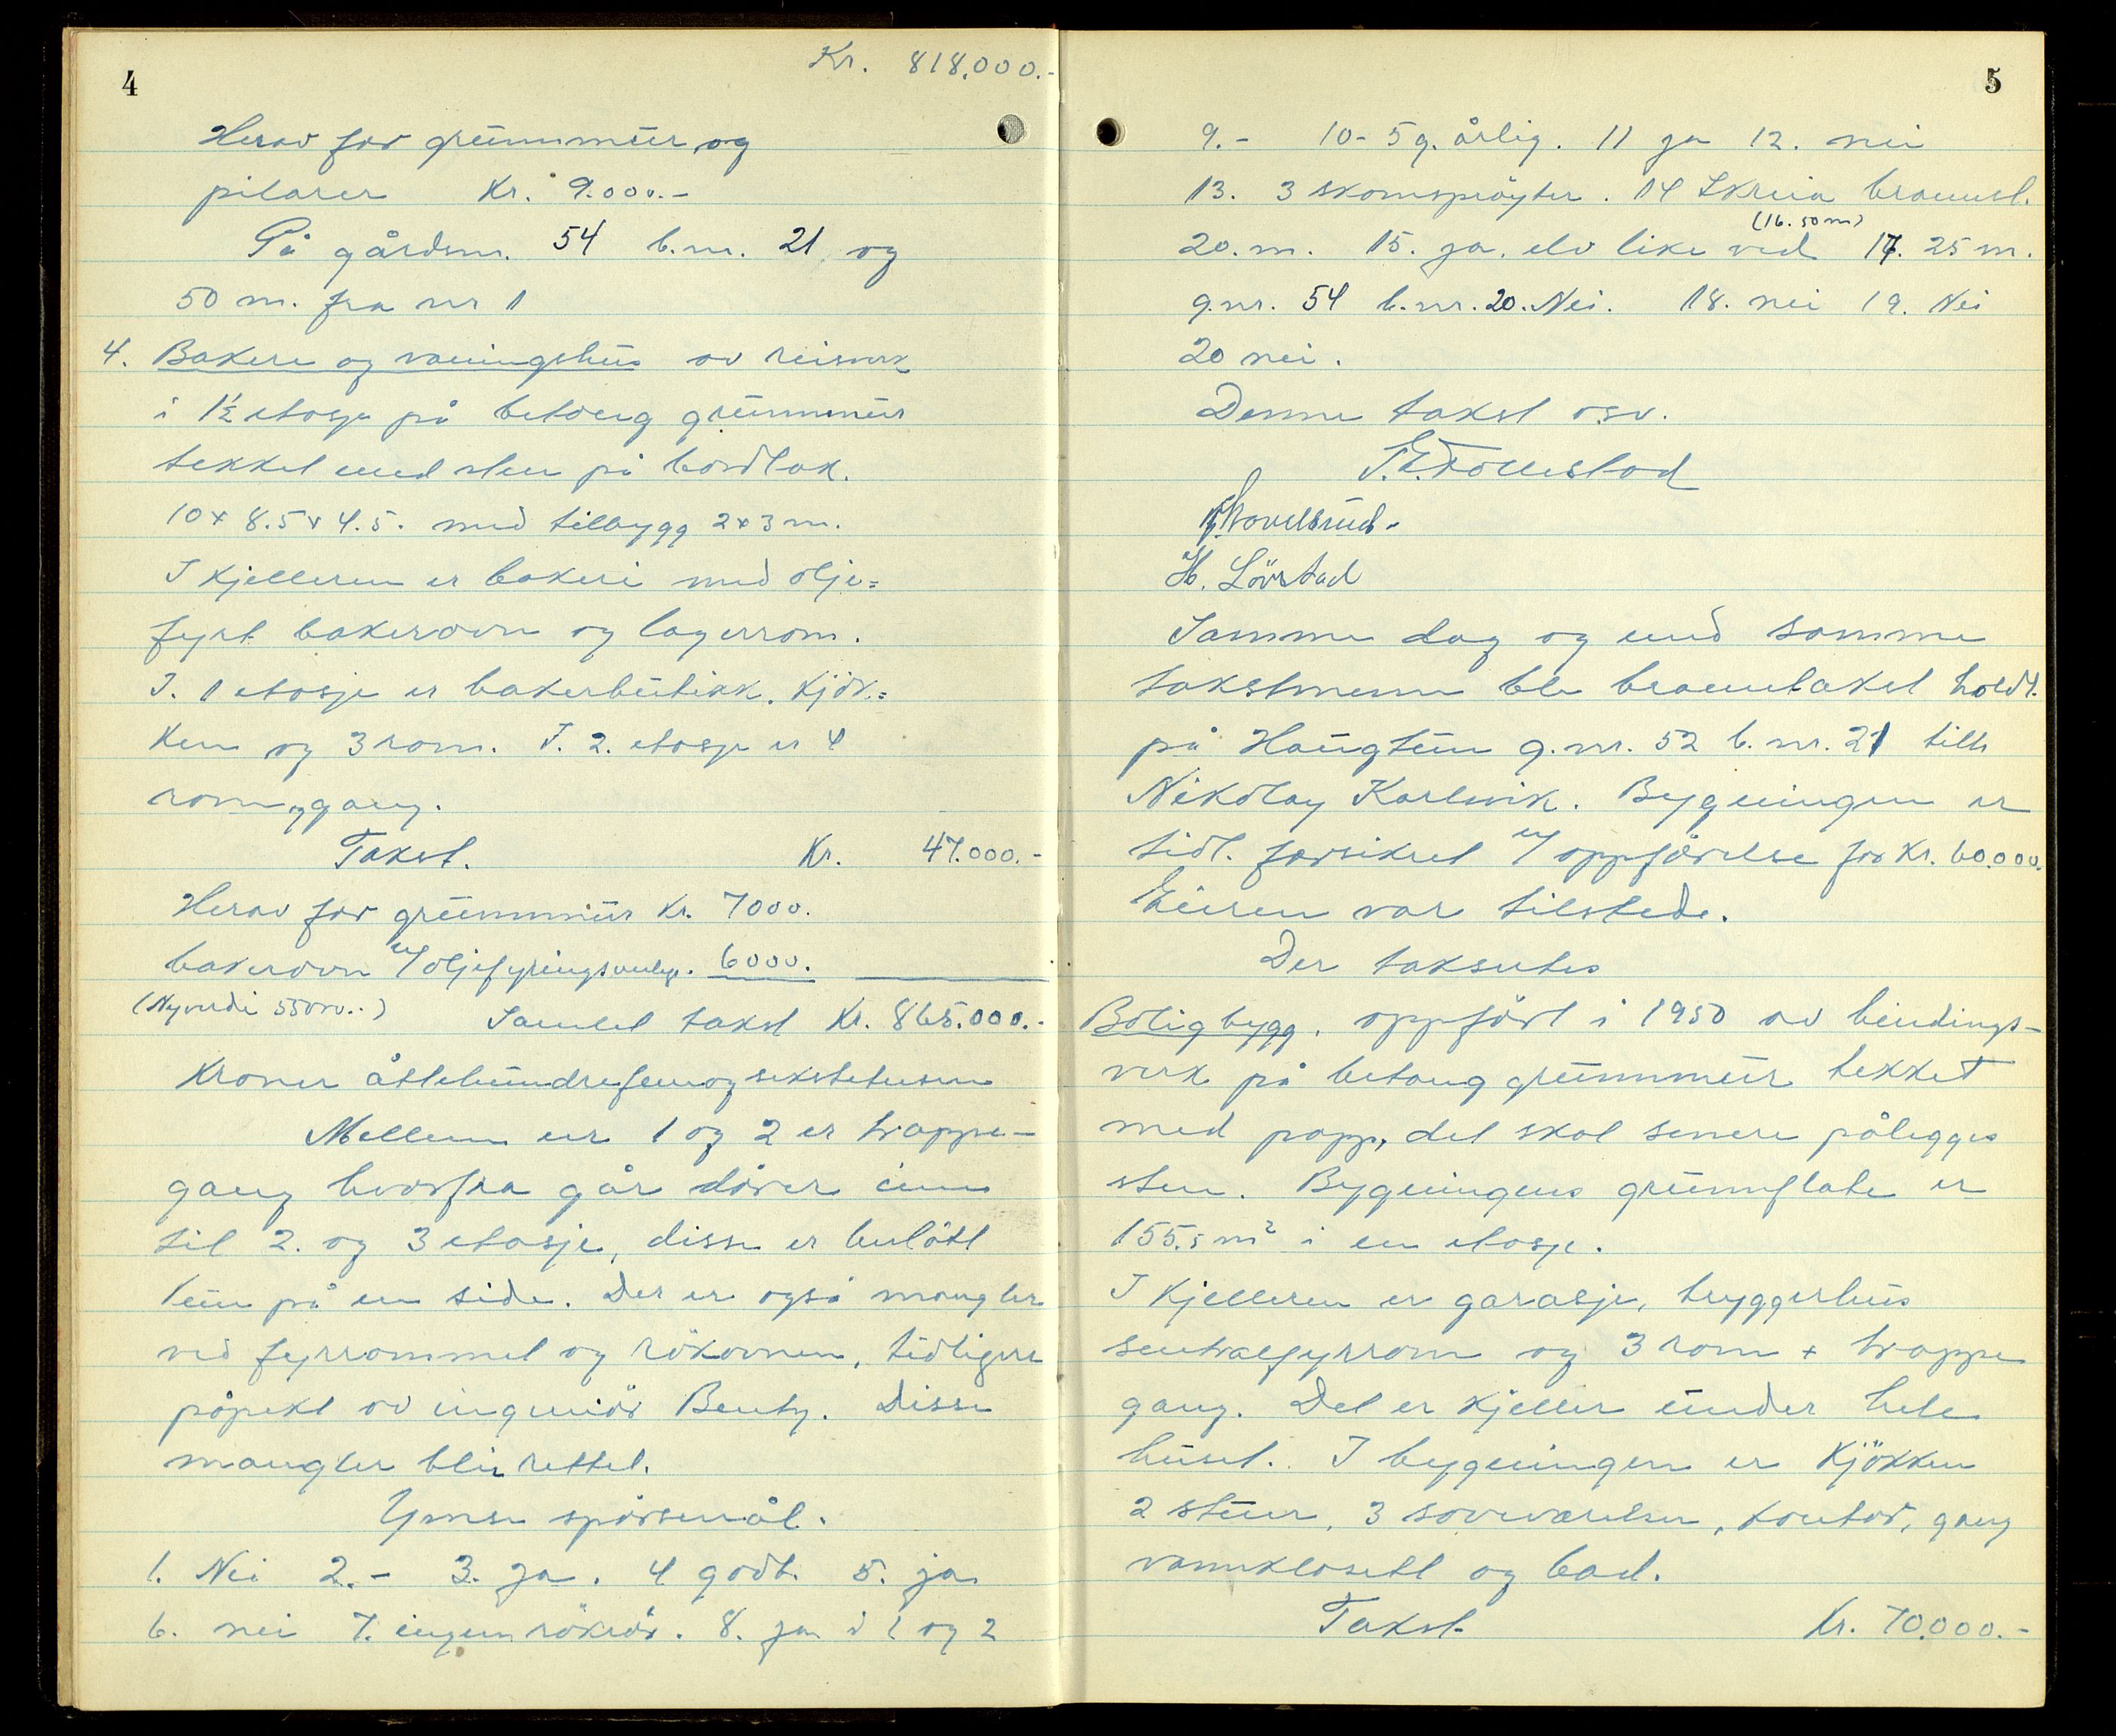 4
Kr. 818.000.-
Herav for grunnmur og
pilarer Kr. 9.000.-
På gårdsnr. 54 b.nr. 21 og
50 m. fra nr 1
4. Bakeri og våningshus av reisverk
i 1½ etasje på betong grunnmur
tekket med sten på bordtak.
10 x 8.5 x 4.5. med tilbygg 2x3 m.
I kjelleren er bakeri med olje=
fyrt bakerovn og lagerrom.
I. 1 etasje er bakerbutikk. kjök=
ken og 3 rom. I. 2. etasje er 4
rom og gang.
Takst. Kr. 47.000.-
Herav for grunnmur Kr. 7000.
bakerovn m/oljefyringsanleg. 6000.
(Nyverdi 55000..) Samlet takst Kr. 865.000.-
Kroner åttehundrefemogsekstitusen
Mellem nr 1 og 2 er trappe-
gang hvorfra går dörer inn
til 2. og 3 etasje, disse er beslått
kun på en side. Der er også mangler
ved fyrrommet og rökovnen, tidligere
påpekt av ingeniör Bentz. Disse
mangler blir rettet.
Ymse spörsmål.
1. Nei 2.- 3. ja. 4 godt. 5. ja
6. nei 7. ingen rökrör. 8. ja i 1 og 2
5
9.- 10- 5 g. årlig. 11 ja 12. nei
13. 3 skomspröyter. 14 Skreia brannst.
(16. 50 m)
20. m. 15. ja. elv like ved 17. 25 m.
g.nr. 54 b.nr. 20. Nei. 18. nei 19. Nei
20 nei.
Denne takst osv.
H. Lövstad
Samme dag og med samme
takstmenn ble branntakst holdt.
på Haugtun g.nr. 52 b.nr. 21 tilh
Nikolay Karlsvik. Bygningen er
tidl. forsikret u/oppförelse for Kr. 60.000.
Eieren var tilstede.
Der takseres
Boligbygg. oppfört i 1950 av bindings-
verk på betong grunnmur tekket
med papp, det skal senere pålegges
sten. Bygningens grunnflate er
155.5 m² i en etasje.
I kjelleren er garasje, bryggerhus
sentralfyrrom og 3 rom + trappe
gang. Det er kjeller under hele
huset. I bygningen er kjökken
2 stuer, 3 soveværelser, kontor, gang
vannklosett og bad.
Takst Kr. 70.000.-